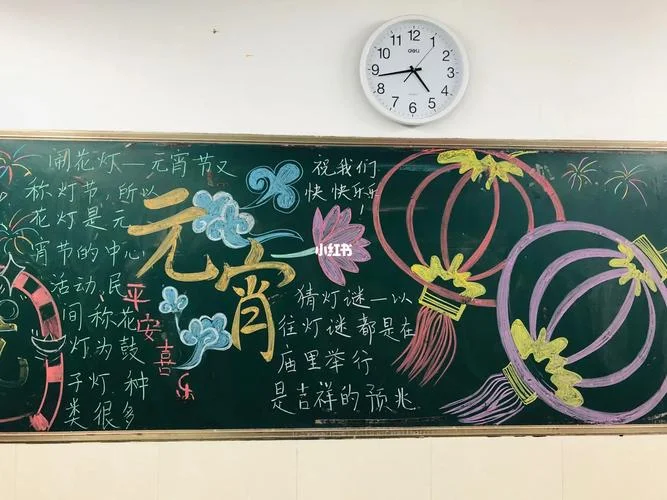 12
1
2
3
4
5
6
7
8
9
10
11
deli
闹花灯—元宵节又
称灯节,所以
花灯是元
宵节的中心
活动,民
间称花
灯为鼓
子灯.种
类很多
平安喜乐
元宵
祝我们
快快乐乐
!
小红书
猜灯谜—以
往灯谜都是在
庙里举行
是吉祥的预兆